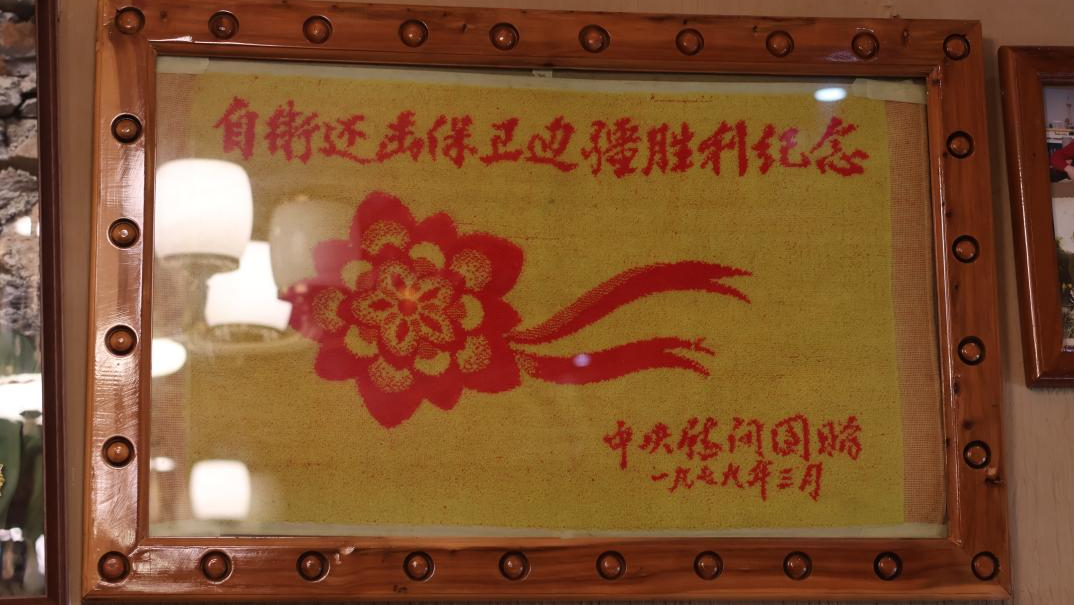 自衛还击保卫边疆胜利纪念
中央慰问团赠
一九七九年三月